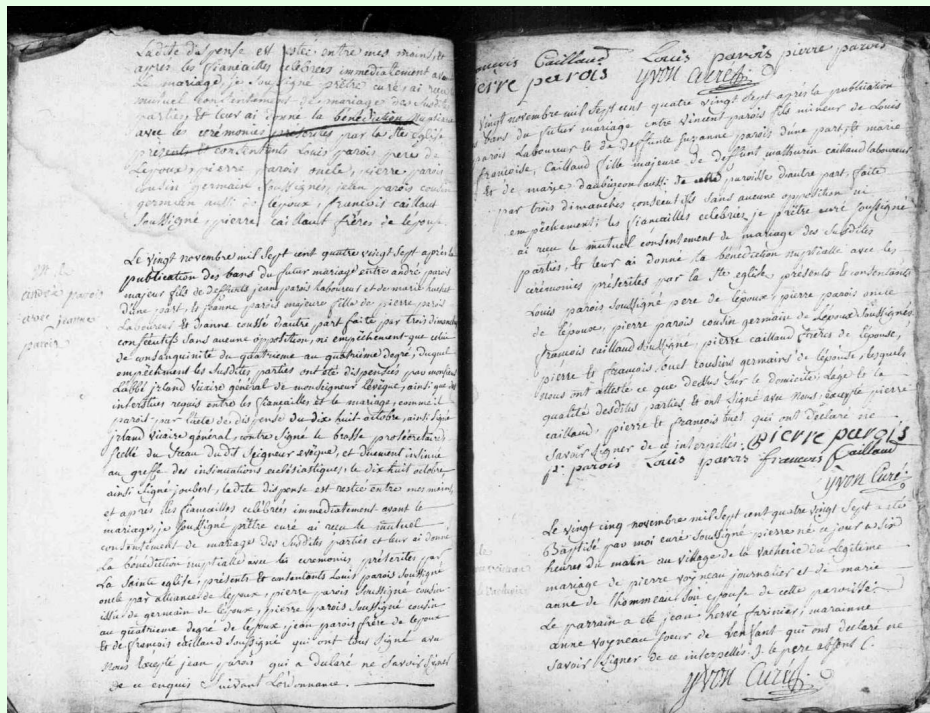 Ladite dispense est restée entre mes mains, et
après les fiancailles célébrées immédiatement avant
Le mariage, je soussigné prêtre curé, ai recu
mutuel consentement de mariage des susdites
parties et leur ai donné la bénédiction nuptiale
avec les cérémonies prescrites par la Ste Eglise
présents et consentants Louis parois pere de
Lepoux, pierre parois oncle, pierre parois
cousin germain soussignés, jean parois cousin
germain aussi de lepoux, francois caillaut
soussigné, pierre caillaut frères de lépouse.
Le vingt novembre mil sept cent quatre vingt sept après la
publication des bans du futur mariage entre andré parois
majeur fils de deffunts jean parois laboureur et de marie
d'une part, et jeanne parois majeure fille de pierre parois
Laboureur et d'anne cousse d'autre part faite par trois dimanches
consécutifs sans aucune opposition, ni empêchement que celui
de consanguinité du quatrieme au quatrieme degré, duquel
empêchement les susdites parties ont été dispensées par monsieur
L'abbé irland vicaire général de monseigneur Levêque, ainsi que des
interstices requis entre les fiancailles et le mariage, comme il
paroit par l'acte de dispense du dix huit octobre, ainsi signé
irland vicaire général, contre signé le brasse prosécretaire,
scellé du sceau dudit seigneur evêque, et duement insinué
au greffe des insinuations ecclésiastiques, le dix huit octobre
ainsi signé joubert, ladite dispense est restée entre mes mains
et après les fiancailles célébrées immediatement avant le
mariage, je soussigné prêtre curé ai recu le mutuel
consentement de mariage des susdites parties et leur ai donné
La bénédiction nuptialle avec les ceremonies prescrites par
La sainte eglise, présents et consentants Louis parois soussigné
oncle par alliance de lepoux, pierre parois soussigné cousin
issu de germain de lepoux, pierre parois soussigné cousin
au quatrième degré de lepoux jean parois frère de lepoux
et de francois caillaud soussigné qui ont tous signé avec
Nous excepté jean parois qui a declaré ne savoir signer
de ce enquis suivant Lordonnance.
andré parois
avec jeanne
parois
françois Caillaud Louis parois pierre parois
pierre parois yvon curé
vingt novembre mil sept cent quatre vingt sept après la publication
des bans du futur mariage entre vincent parois fils mineur de Louis
parois Laboureur et de deffunte suzanne parois d'une part, et marie
francoise, caillaud fille majeure de deffunt mathurin caillaud laboureur
et de marie daubigeon aussi de cette paroisse d'autre part, faite
par trois dimanches consécutifs sans aucune opposition ni
empêchement; les fiancailles célébrées je prêtre curé soussigné
ai reçu le mutuel consentement de mariage des susdites
parties, et leur ai donné la bénédiction nuptialle avec les
cérémonies prescrites par la Ste eglise, présents et consentants
Louis parois soussigné pere de lépoux, pierre parois oncle
de lépoux, pierre parois cousin germain de Lepoux soussignés
francois caillaud soussigné, pierre caillaud frères de lépouse,
pierre et francois, huet cousins germains de lépouse, lesquels
nous ont attesté ce que dessus sur le domicile Lage et la
qualité desdites parties et ont signé avec Nous, excepté pierre
caillaud, pierre et francois huet qui ont déclaré ne
savoir signer de ce interpellés. pierre parois
p. parois Louis parois françois Caillaud
yvon Curé
Le vingt cinq novembre mil sept cent quatre vingt sept a été
Baptisé par moi curé soussigné pierre né ce jour a six
heures du matin au village de la vacherie du Légitime
mariage de pierre voyneau journalier et de marie
anne de lhommeau son epouse de cette paroisse.
Le parrain a été jean hervé farinier, marainne
anne voyneau soeur de Lenfant qui ont declaré ne
savoir signer de ce interpellés. le pere absent.
yvon Curé